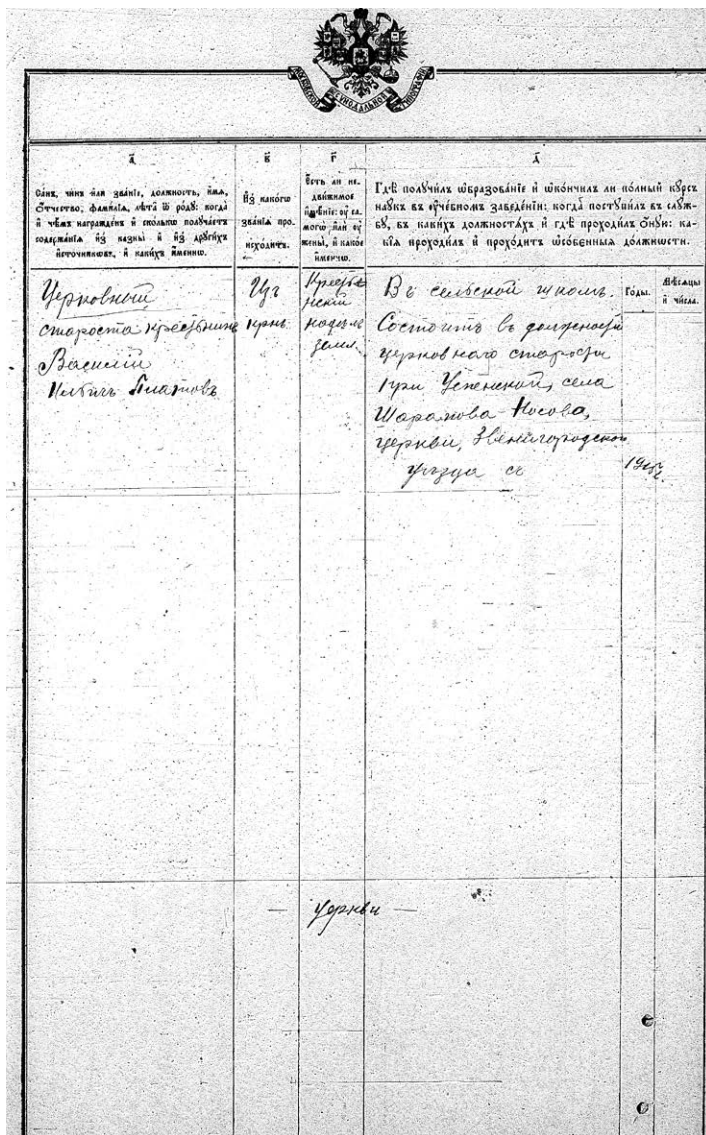 МОСКОВСКОЙ СѴНОДАЛЬНОЙ ТИПОГРАФІИ
а҃
Санъ, чинъ или званіе, должность, имѧ,
Отчество, фамиліѧ, лѣта ѿ роду: когда
и чѣмъ награжденъ и сколько получаетъ
содержанїѧ изъ казны и изъ другихъ
источниковъ, и какихъ именнѡ.
в҃
Изъ какогѡ
званїѧ про-
исходитъ.
г҃
Есть ли не-
движимое
имѣнїе: оу са-
могѡ или оу
жены, и какое
именнѡ.
д҃
Гдѣ получилъ ѡбразованїе и ѡкончилъ ли полный курсъ
наукъ въ оучебномъ заведенїи: когда поступилъ въ служ-
бу, въ какихъ должностѧхъ и гдѣ проходилъ ѻную: ка-
кїѧ проходилъ и проходитъ ѡсобенныѧ должности.
Годы.
Мѣсѧцы
и числа.
Церковный
староста крестьянинъ
Василій
Платовъ
Изъ
крнъ
Кресть
нскій
надѣлъ
земл.
Въ сельской школѣ.
Состоитъ въ должности
церковнаго старосты
при Успенской, села
Шарапова-Носова,
церкви, Звенигородскаго
уѣзда съ
церкви